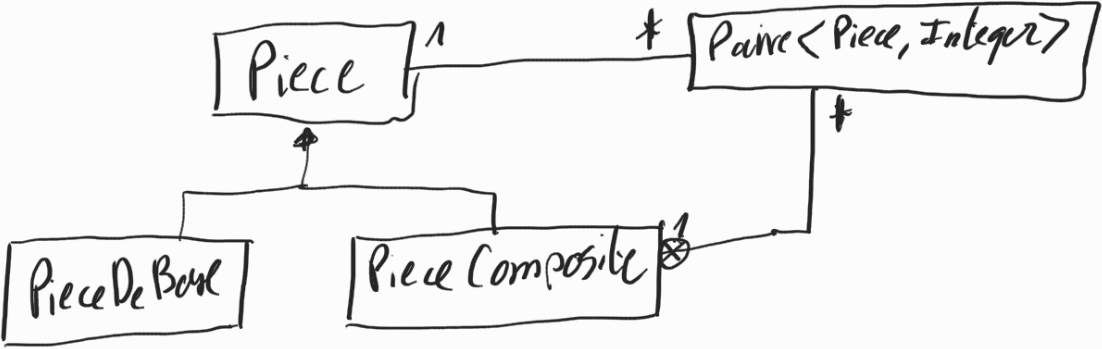 Piece
1
*
Paire<Piece, Integer>
*
1
PieceDeBase
PieceComposite